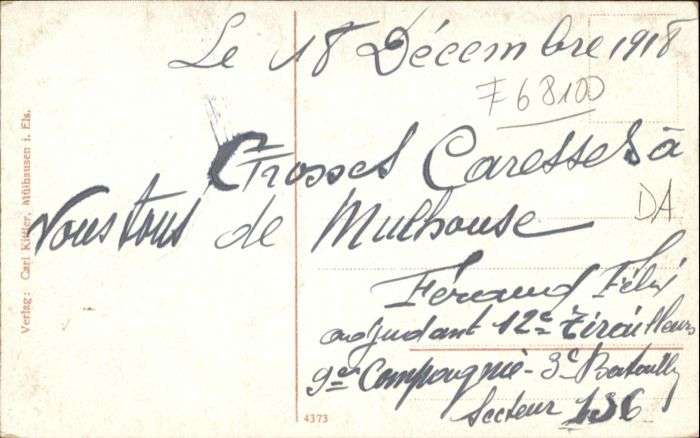 Le 18 Décembre 1918
F68100
Grosses Caresses à
Vous tous de Mulhouse
DA
Féraud Félix
adjudant 12e Tirailleurs
9e Compagnie - 3e Bataill
Secteur 136
Verlag: Carl Kittler, Mülhausen i. Els.
4373